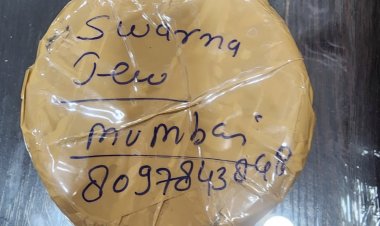 Swarna
Jew
mumbai
8097843848